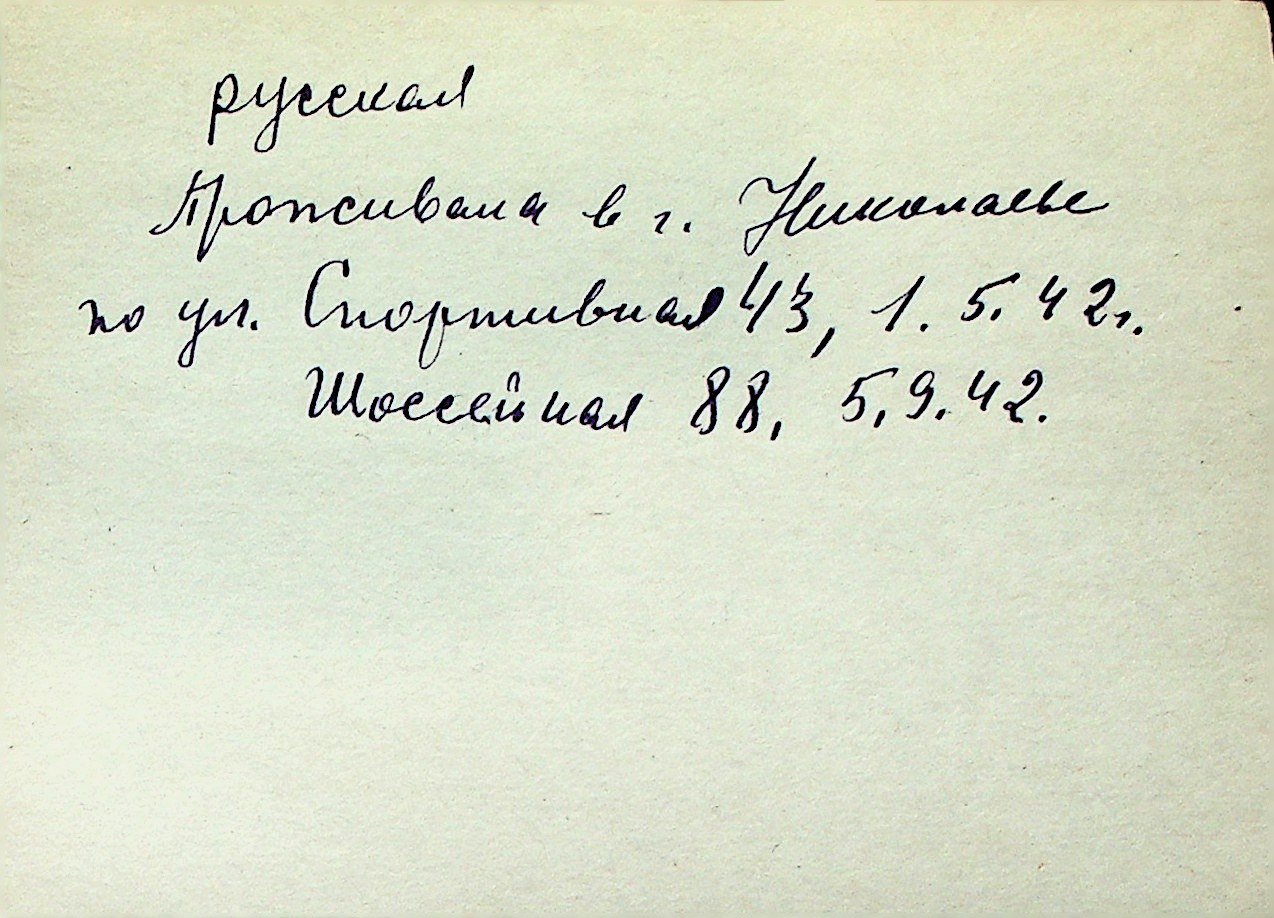 русская
Проживала в г. Николаеве
по ул. Спортивная 43, 1.5.42г.
Шоссейная 88, 5.9.42.